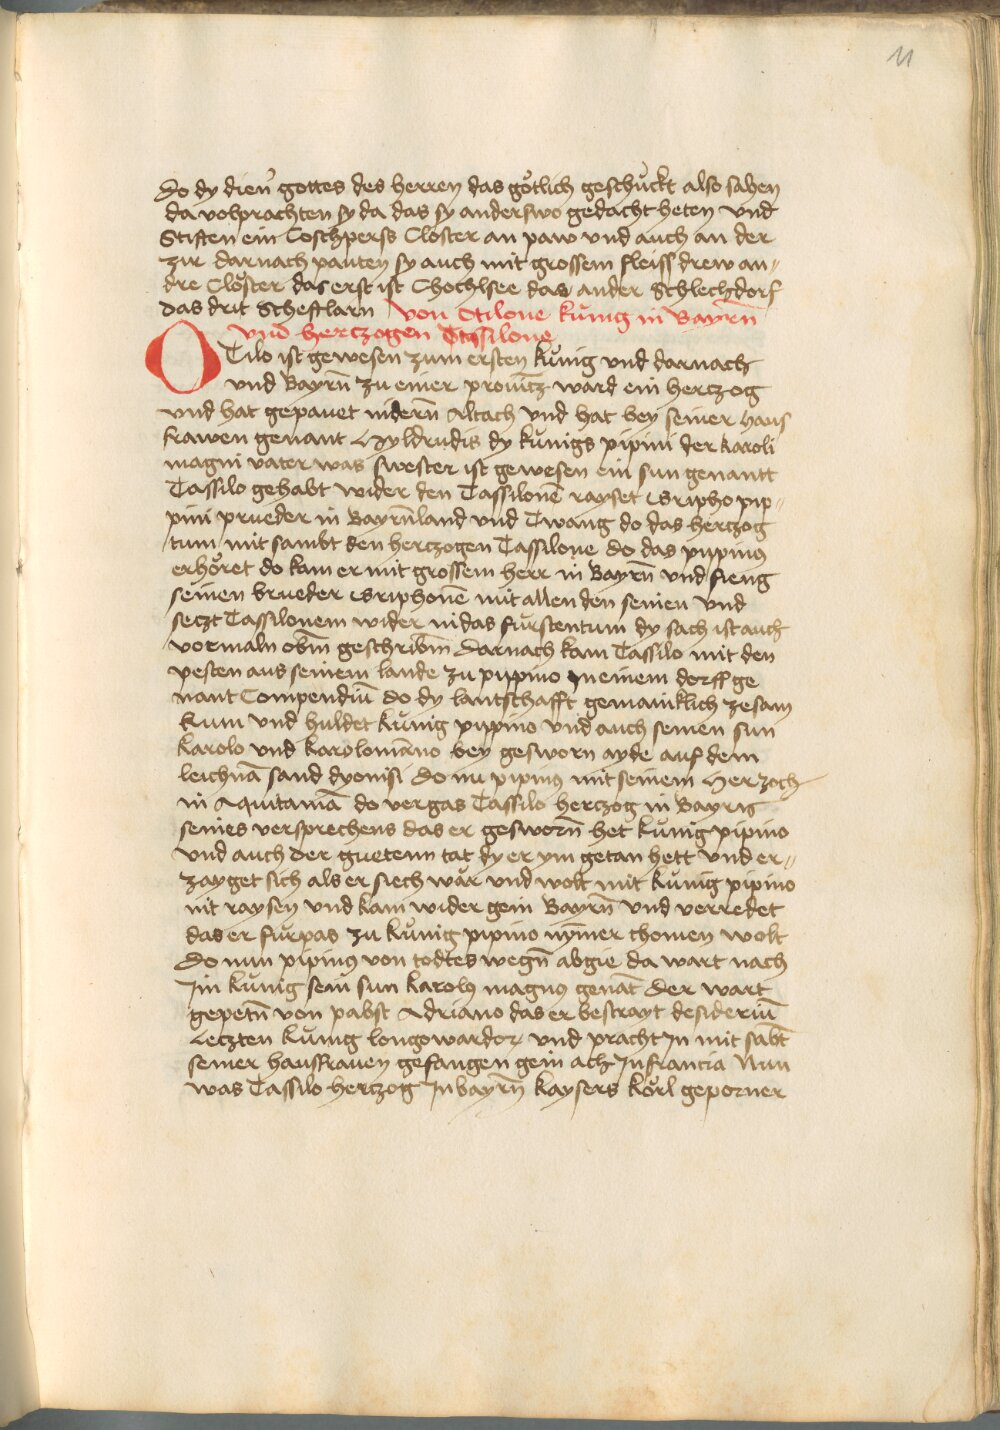 11
Do dy dien̄ gottes des herren das gȯtlich geschu̇ckt also sahen
da volprachten sy da das sy anderswo gedacht heten vnd
Stifften ein Coschpersz Closter an paw vnd auch an der
zir darnach pauten sy auch mit grossem fleiss drew an⸗
dre Clȯster das erst ist Chochlsee das ander Schlechdorf
das drit Schefftlarn von Otilone ku̇nig in Bayrn̄
vnd hertzogen Thassilone
OTilo ist gewesen zum ersten ku̇nig vnd darnach
vnd Bayrn̄ zu einer prouintz ward ein hertzog
vnd hat gepauet nidern̄ Altach vnd hat bey seiner Haus
frawen genant Hyldrudis dy ku̇nigs pipini der karoli
magni vater was swester ist gewesen ein sun genantt
Tassilo gehabt wider den Tassilonē rayset Gripho pip⸗
pini prueder in Bayrn̄land vnd Twang do das hertzog
tum mit sambt den hertzogen Tassilone do das pippinus
erhȯret do kam er mit grossem herr in Bayrn̄ vnd fieng
seinen brueder Griphonē mit allen den seinen vnd
seczt Tassilonem wider in das fu̇rstentum dy sach ist auch
vormaln obn̄ geschribn̄ Darnach kam Tassilo mit den
pesten aus seinem lande zu pippino In einem dorff ge
nant Compendiū do dy lantschafft gemainklich zesam
kum vnd huldet ku̇nig pippino vnd auch seinen sun
karolo vnd karolomāno bey gesworn ayde auf dem
leichnā sand dyonisi Do nu pipinus mit seinem Her zoch
in Aquitaniā do vergas Tassilo hertzog in Bayrn
seines versprechens das er gesworn̄ het ku̇nig pipino
vnd auch der guetenn tat dy er ym getan hett vnd er⸗
zayget sich als er siech wȧr vnd wolt mit ku̇nig pipino
nit raysen vnd kam wider gein Bayrn̄ vnd verredet
das er fu̇rpas zu ku̇nig pipino nȳmer chomen wolt
Do nun pipinus von todtes wegn̄ abgie da wart nach
Im ku̇nig sein sun karolus magnus genāt Der wart
gepetn̄ von pabst Adriano das er bestrayt desideriū
Leczten ku̇nig longowardor vnd pracht In mit sabt̄
seiner hausfrauen gefangen gein ach In francia Nun
was Tassilo hertzog In bayrn̄ kaysers kȧrl geporner